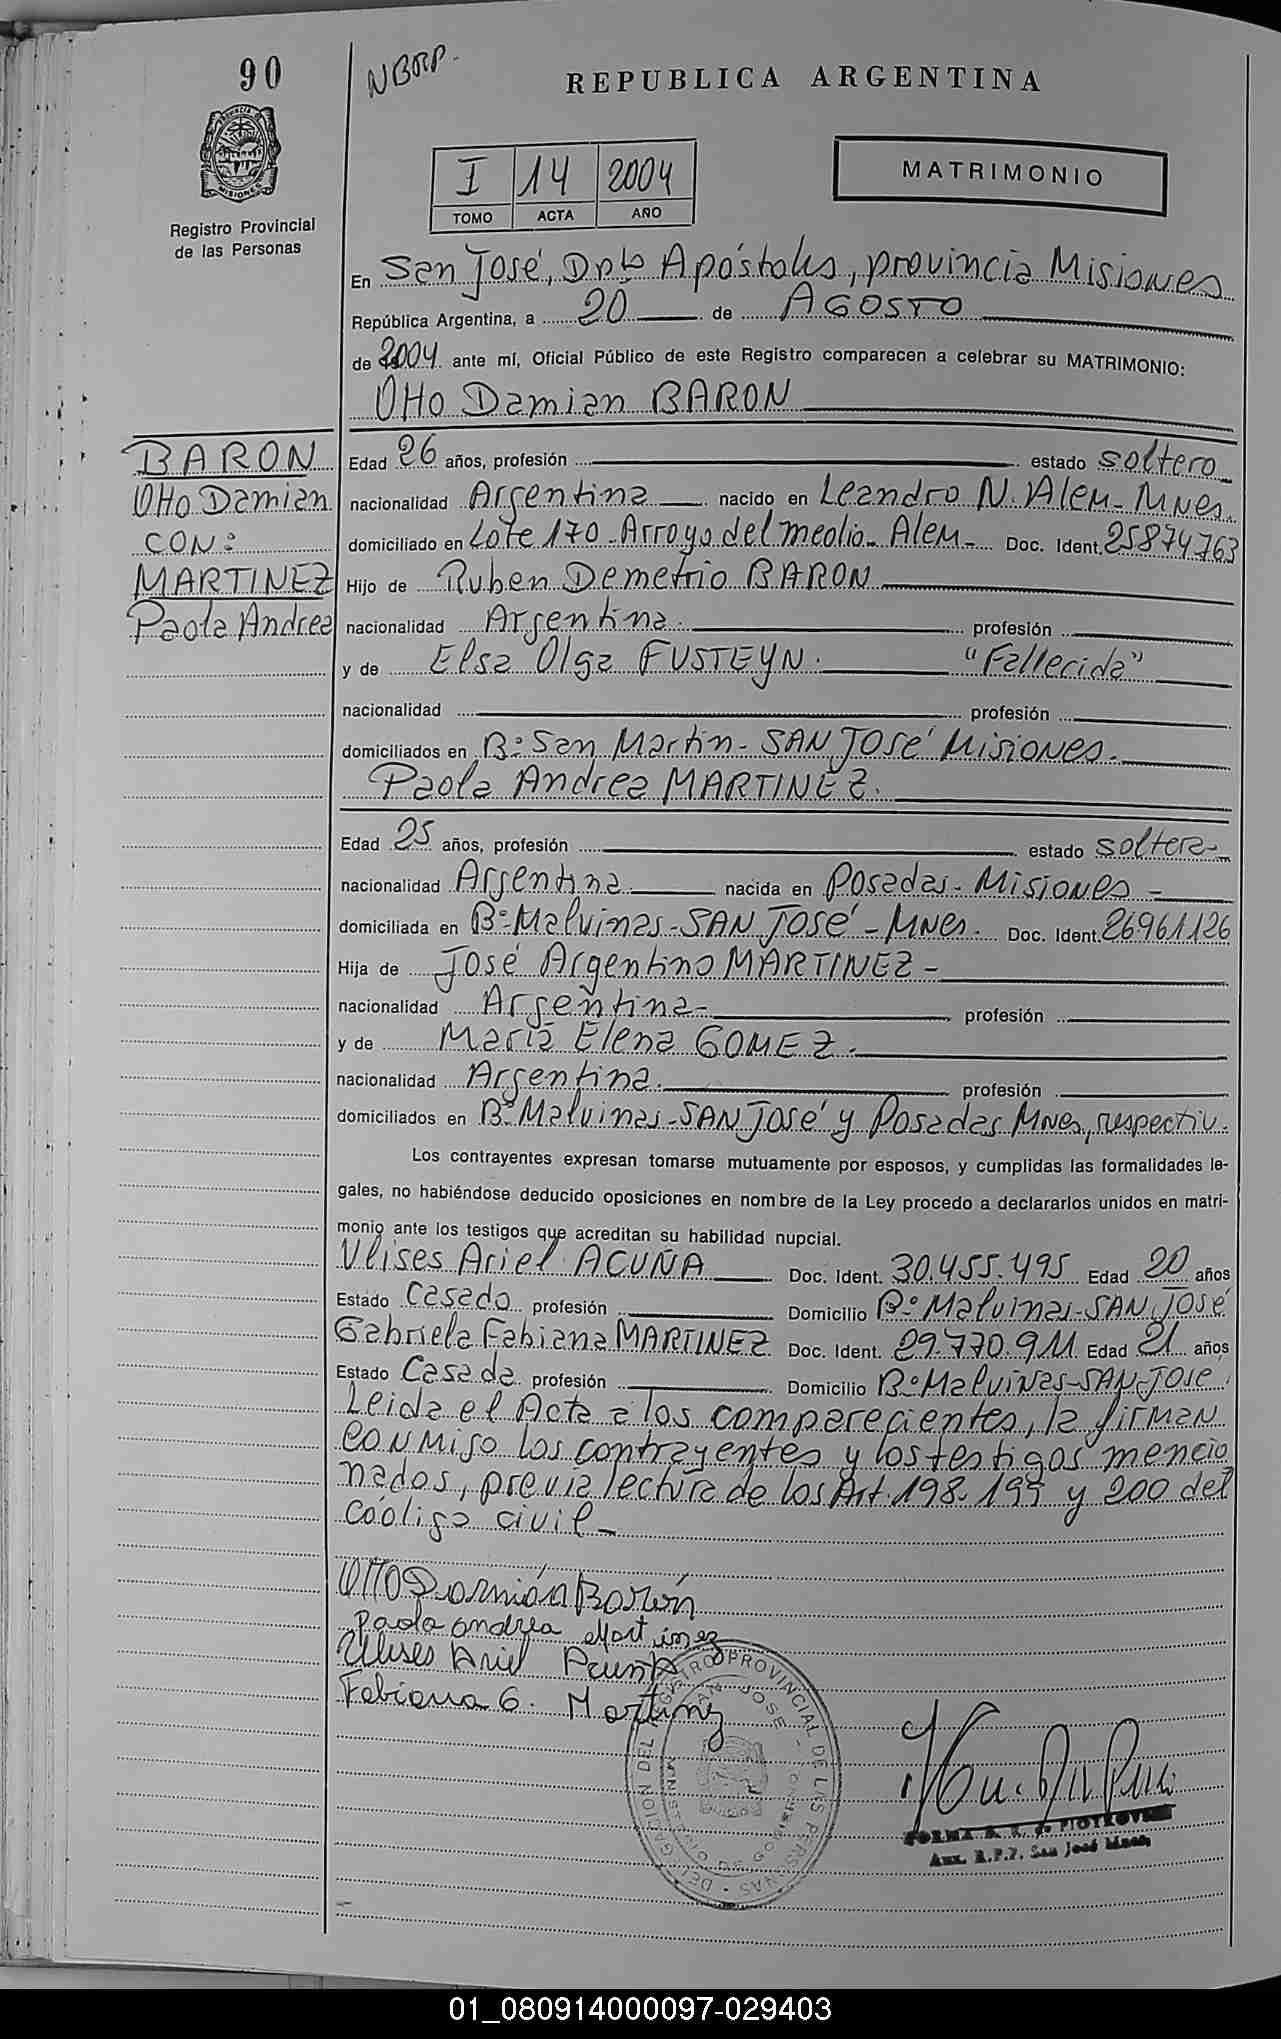 90
NBRP.
REPUBLICA ARGENTINA
PROVINCIA DE
MISIONES
Registro Provincial
de las Personas
I 14 2004
TOMO ACTA AÑO
MATRIMONIO
En San José, Dpto Apóstoles, provincia Misiones
República Argentina, a 20 de AGOSTO
de 2004 ante mí, Oficial Público de este Registro comparecen a celebrar su MATRIMONIO:
Otto Damian BARON
BARON
Otto Damian
CON:
MARTINEZ
Paola Andrea
Edad 26 años, profesión estado soltero
nacionalidad Argentina nacido en Leandro N. Alem - Mnes.
domiciliado en Lote 170 - Arroyo del medio - Alem - Doc. Ident. 25874763
Hijo de Ruben Demetrio BARON
nacionalidad Argentina. profesión
y de Elsa Olga FUSTEYN. "Fallecida"
nacionalidad profesión
domiciliados en Bº San Martin - SAN JOSÉ Misiones.
Paola Andrea MARTINEZ.
Edad 25 años, profesión estado soltera -
nacionalidad Argentina nacida en Posadas - Misiones -
domiciliada en Bº Malvinas - SAN JOSÉ - Mnes. Doc. Ident. 26961126
Hija de José Argentino MARTINEZ -
nacionalidad Argentina - profesión
y de María Elena GOMEZ.
nacionalidad Argentina. profesión
domiciliados en Bº Malvinas - SAN JOSÉ y Posadas Mnes, respectiv.
Los contrayentes expresan tomarse mutuamente por esposos, y cumplidas las formalidades le-
gales, no habiéndose deducido oposiciones en nombre de la Ley procedo a declararlos unidos en matri-
monio ante los testigos que acreditan su habilidad nupcial.
Ulises Ariel ACUÑA Doc. Ident. 30.455.495 Edad 20 años
Estado Casado profesión Domicilio Bº Malvinas - SAN JOSÉ
Gabriela Fabiana MARTINEZ Doc. Ident. 29.770.911 Edad 21 años
Estado Casada profesión Domicilio Bº Malvinas - SAN JOSÉ
Leida el Acta a los comparecientes, la firman
conmigo los contrayentes y los testigos mencio
nados, previa lectura de los Art. 198. 199 y 200 del
código civil -
Otto Damián Barón
Paola Andrea Martinez
Ulises Ariel Acuña
Fabiana G. Martinez
DELEGACION DEL REGISTRO PROVINCIAL DE LAS PERSONAS
SAN JOSE
NORMA PIOTROVSKI
Aux. R.P.P. San José Mnes.
01_080914000097-029403